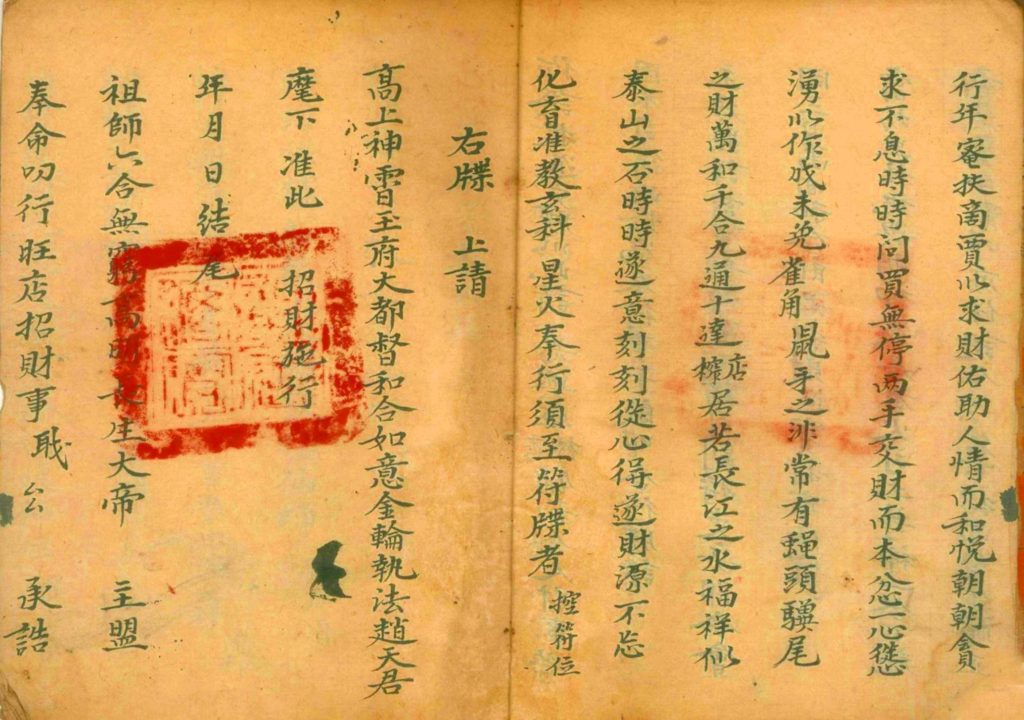 行年密扶商賈以求財佑助人情而和悅朝朝貪
求不息時時問買無停两手交財而本忿二心慫
湧以作成未免雀角鼠牙之非常有蝇頭驥尾
之財萬和千合九通十達店榨居若長江之水福祥似
泰山之石時時遂意刻刻從心得遂財源不忘
化育准教玄科星火奉行須至符牒者 控符位
右牒 上請
高上神霄玉府大都督和合如意金輪執法趙天君
麾下准此 招財施行
年月日結尾
祖師六合無窮高明大生大帝 主盟
奉命叨行旺店招財事職厶 承誥